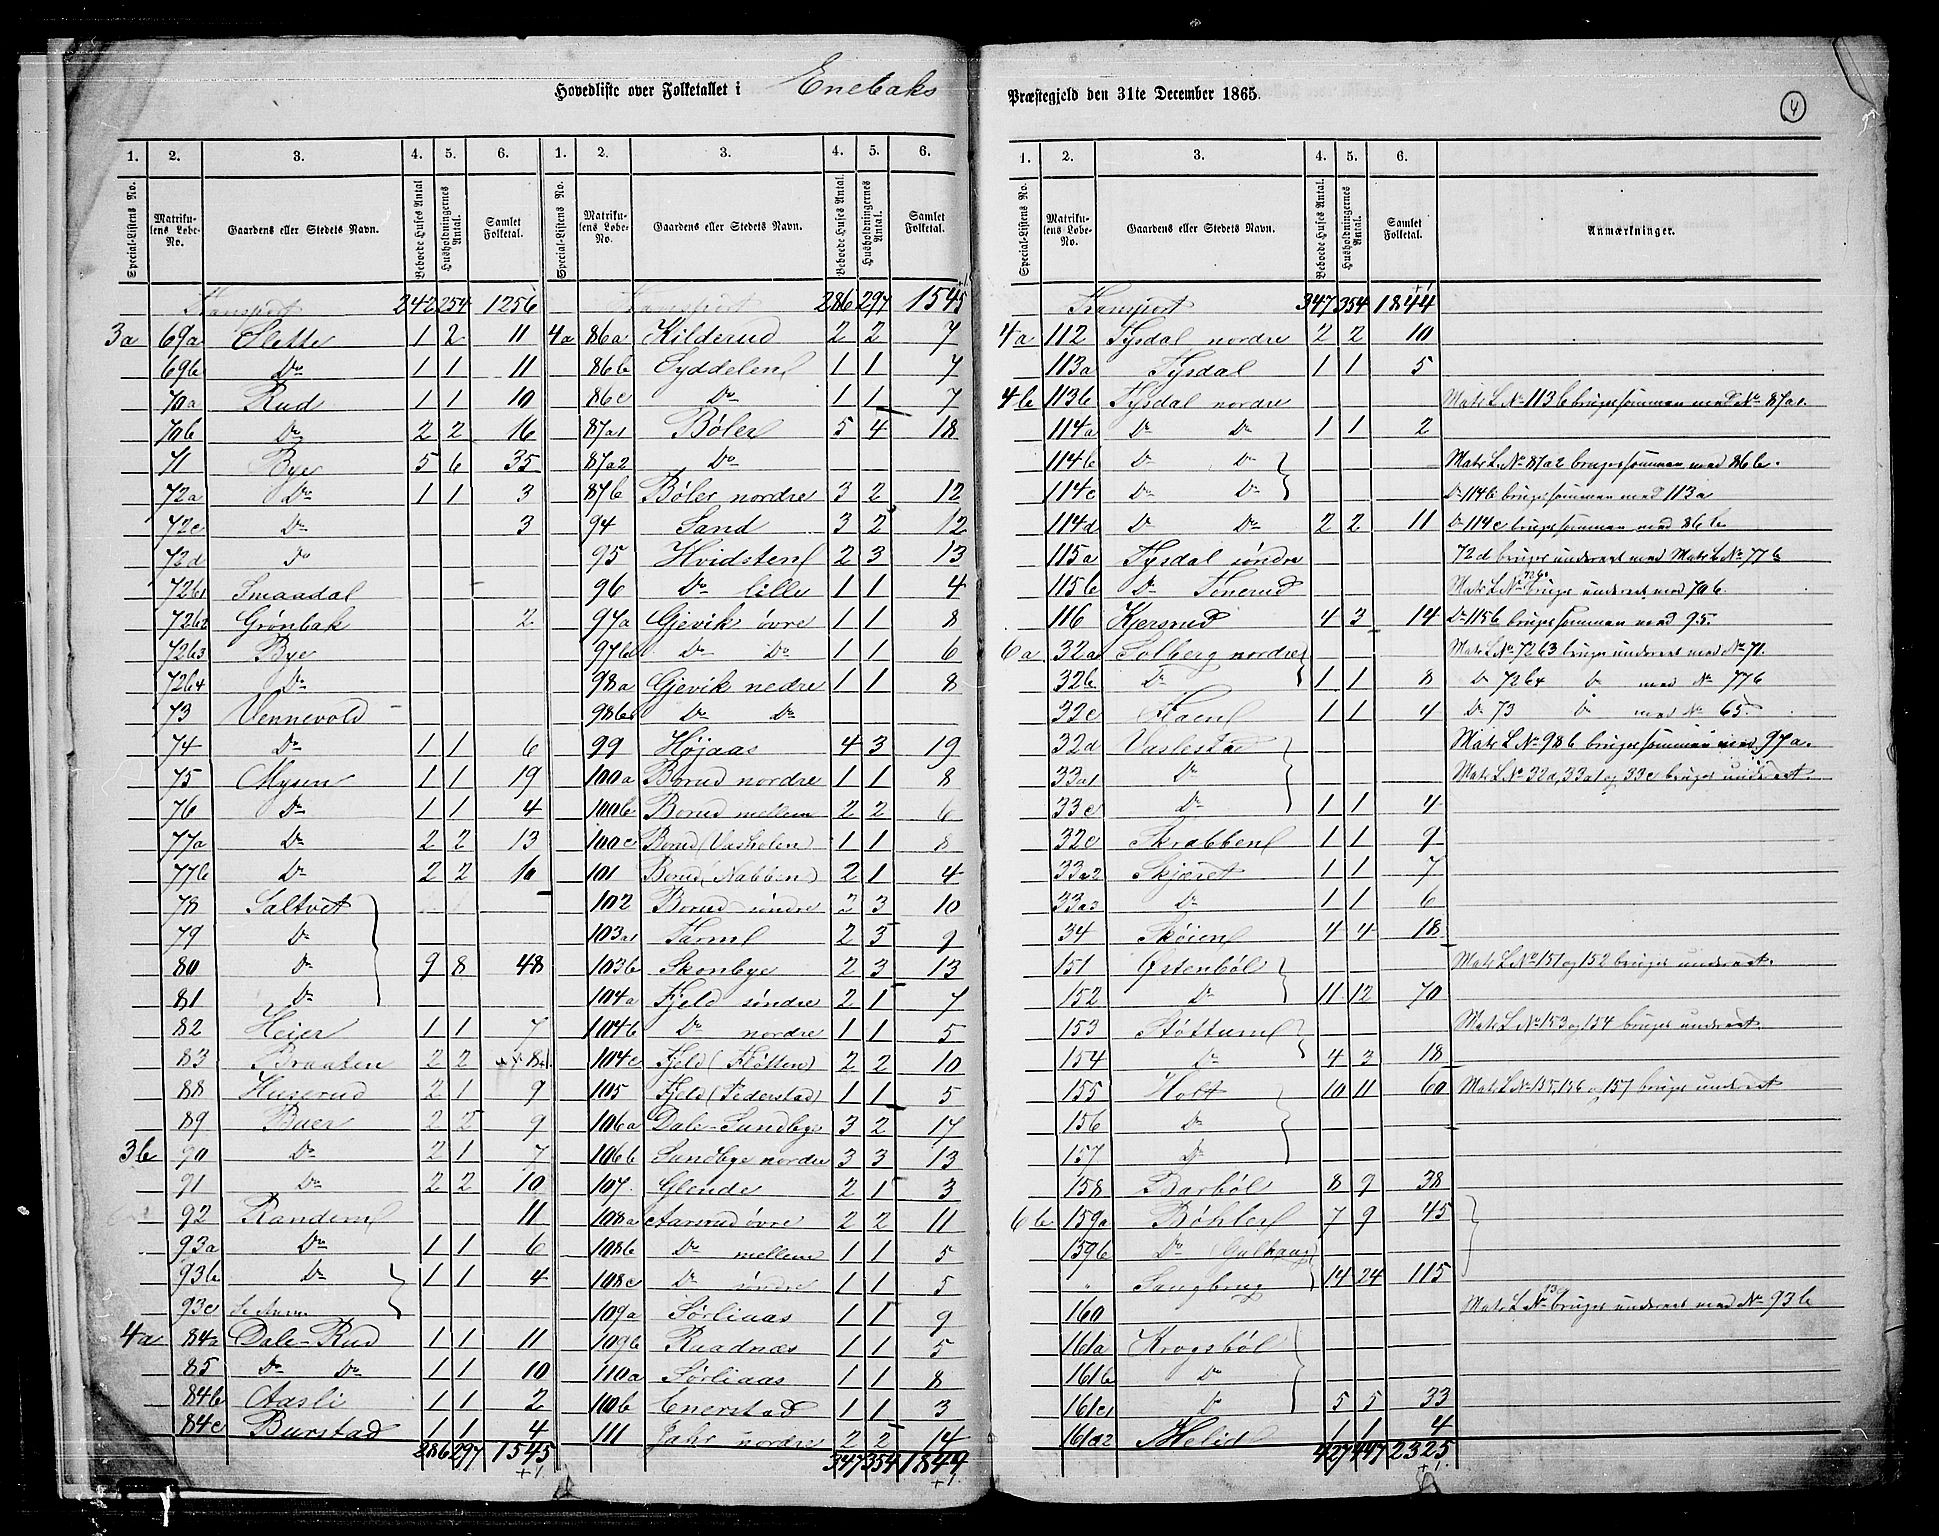 Hovedliste over Folketallet i Enebaks Præstegjeld den 31te December 1865.
4
1. 2. 3. 4. 5. 6. 1. 2. 3. 4. 5. 6.
Special-Listens No. Matrikulens Løbe-No. Gaardens eller Stedets Navn. Beboede Huses Antal Husholdningernes Antal. Samlet Folketal. Special-Listens No. Matrikulens Løbe-No. Gaardens eller Stedets Navn. Beboede Huses Antal. Husholdningernes Antal. Samlet Folketal.
Transport 242 254 1256
3a 69a Slette 1 2 11
69b Do 1 1 11
70a Rud 1 1 10
70b Do 2 2 16
71 Bye 5 6 35
72a Do 1 1 3
72c Do 3
72d Do
72b1 Smaadal
72b2 Grønbak 2
72b3 Bye
72b4 Do
73 Vennevold
74 Do 1 1 6
75 Mysen 1 1 19
76 Do 1 1 4
77a Do 2 2 13
77b Do 2 2 16
78 Saltvet
79 Do
80 Do 9 8 48
81 Do
82 Heier 1 1 7
83 Braaten 2 2 8
88 Huserud 2 1 9
89 Buer 2 2 9
3b 90 Do 2 1 7
91 Do 2 2 10
92 Randem 11
93a Do 1 1 6
93b Do 1 1 4
93c
4a 84a Dale-Rud 1 1 11
85 Do Do 1 1 10
84b Aasli 1 1 2
84c Burstad 1 1 4
286 297 1545
+1
Transport 286 297 1545
+1
4a 86a Kilderud 2 2 7
86b Syddelen 1 1 7
86c Do 1 1 7
87a1 Bøler 5 4 18
87a2 Do
87b Bøler nordre 3 2 12
94 Sand 3 2 12
95 Hvidsten 2 3 13
96 Do lille 1 1 4
97a Gjevik øvre 1 1 8
97b Do Do 1 1 6
98a Gjevik nedre 1 1 8
98b Do Do
99 Højaas 4 3 19
100a Borud nordre 1 1 8
100b Borud mellem 2 2 6
100c Borud (Vaskolen) 1 1 8
101 Borud (Nabben) 2 1 4
102 Borud søndre 2 3 10
103a 2 3 9
103b Skonbye 2 3 13
104a Fjeld søndre 2 1 7
104b Do nordre 1 1 5
104c Fjeld (Fløtten) 2 2 10
105 Fjeld (Federstad) 1 1 5
106a Dale-Sundbye 3 2 17
106b Sundbye nordre 3 3 13
107 Glende 2 1 3
108a Aarsrud øvre 2 2 11
108b Do mellem 1 1 5
108c Do søndre 1 1 5
109a Sørliaas 1 1 9
109b Raadnæs 1 1 5
110a Sørliaas 1 1 8
110b Enerstad 1 1 3
111 Jahr nordre 2 2 14
347 354 1844
+1.
1. 2. 3. 4. 5. 6.
Special-Listens No. Matrikulens Løbe-No. Gaardens eller Stedets Navn. Beboede Huses Antal. Husholdningernes Antal. Samlet Folketal. Anmærkninger.
+1
Transport 347 354 1844
4a 112 Tysdal nordre 2 2 10
113a Tysdal 1 1 5
4b 113b Tysdal nordre Matr L No 113 b bruges sammen med No 87a1.
114a Do Do 1 1 2
114b Do Do Matr L No 87a2 bruges sammen med 86 b.
114c Do Do Do 114b bruges sammen med 113a
114d Do Do 2 2 11 Do 114c bruges sammen med 86b
115a Tysdal søndre 72d bruges undereet med Matr L No 77b
115b Do Tenerud Matr L No 72b1 bruges undereet med 70b.
116 Kjersrud 4 3 14 Do 115b bruges sammen med 95.
6a 32a Solberg nordre Matr L No 72b3 bruges undereet med No 71.
32b Do 1 1 8 Do 72b4 Do med No 77b
32c 1 1 4 Do 73 Do med No 65.
32d Vaslestad Matr L No 98b bruges sammen med 97a.
33a1 Do Matr L No 32a, 33a1 og 33c bruges undereet
33c Do 1 1 4
32e Skrabben 1 1 9
33a2 Skjæret 1 1 7
33a3 Do 1 1 6
34 Skøien 4 4 18
151 Østenbøl Matr L No 151 og 152 bruges undereet.
152 Do 11 12 70
153 Støttum Matr L No 153 og 154 bruges undereet.
154 Do 4 3 18
155 Holt 10 11 60 Matr L No 155, 156 og 157 bruges undereet
156 Do
157 Do
158 Barbøl 8 9 38
6b 159a Bøhler 7 9 45
159b Do (Gulhaug)
" Sangbrug 14 24 115
160 Matr L No 93c bruges undereet med No 93b
161a Krogsbøl
161b Do
161c1 Do 5 5 33
161c2 Melid 1 1 4
427 447 2325
+1.